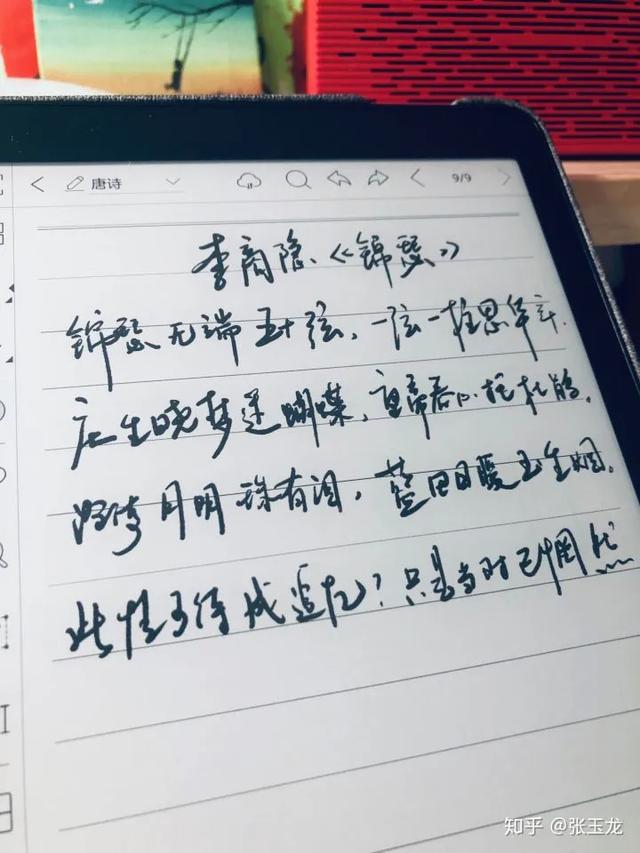 唐诗
9/9
李商隐《锦瑟》
锦瑟无端五十弦，一弦一柱思华年.
庄生晓梦迷蝴蝶，望帝春心托杜鹃。
沧海月明珠有泪，蓝田日暖玉生烟。
此情可待成追忆？只是当时已惘然
知乎 @张玉龙